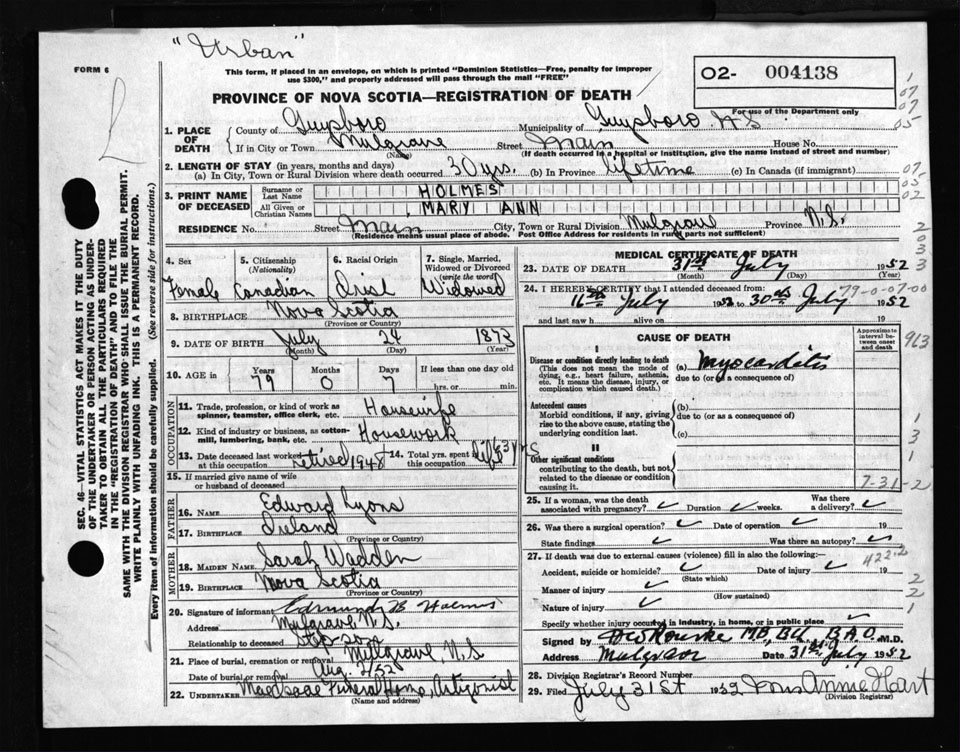 "Urban"
FORM 6
This form, if placed in an envelope, on which is printed "Dominion Statistics—Free, penalty for improper
use $300," and properly addressed will pass through the mail "FREE"
02- 004138
For use of the Department only
PROVINCE OF NOVA SCOTIA—REGISTRATION OF DEATH
1. PLACE OF DEATH
County of Guysboro Municipality of Guysboro N S
If in City or Town Mulgrave (Name) Street Main House No.
(If death occurred in a hospital or institution, give the name instead of street and number)
2. LENGTH OF STAY (in years, months and days)
(a) In City, Town or Rural Division where death occurred 30 yrs. (b) In Province lifetime (c) In Canada (if immigrant)
3. PRINT NAME OF DECEASED
Surname or Last Name HOLMES
All Given or Christian Names MARY ANN
RESIDENCE No. Street Main City, Town or Rural Division Mulgrave Province N.S.
(Residence means usual place of abode. Post Office Address for residents in rural parts not sufficient)
4. Sex Female
5. Citizenship (Nationality) Canadian
6. Racial Origin Irish
7. Single, Married, Widowed or Divorced (write the word) Widowed
8. BIRTHPLACE Nova Scotia
(Province or Country)
9. DATE OF BIRTH July 24 1873
(Month) (Day) (Year)
10. AGE in Years 79 Months 0 Days 7 If less than one day old hrs. or min.
OCCUPATION
11. Trade, profession, or kind of work as spinner, teamster, office clerk, etc. Housewife
12. Kind of industry or business, as cotton-mill, lumbering, bank, etc. Housework
13. Date deceased last worked at this occupation retired 1948
14. Total yrs. spent in this occupation
15. If married give name of wife or husband of deceased
FATHER
16. NAME Edward Lyons
17. BIRTHPLACE Ireland
(Province or Country)
MOTHER
18. MAIDEN NAME Sarah Wadden
19. BIRTHPLACE Nova Scotia
(Province or Country)
20. Signature of informant Edmund B Holmes
Address Mulgrave N.S.
Relationship to deceased Step-son
21. Place of burial, cremation or removal Mulgrave, N.S
Date of burial or removal Aug. 2/52
22. UNDERTAKER MacIsaac Funeral Home, Antigonish
(Name and address)
MEDICAL CERTIFICATE OF DEATH
23. DATE OF DEATH 31st July 1952
(Month) (Day) (Year)
24. I HEREBY CERTIFY that I attended deceased from:
16th July 1952 to 30th July 1952
79-0-07-00
and last saw h alive on 19
CAUSE OF DEATH
Approximate interval between onset and death
I
Disease or condition directly leading to death
(This does not mean the mode of dying, e.g., heart failure, asthenia, etc. It means the disease, injury, or complication which caused death.)
(a) Myocarditis
due to (or as a consequence of)
Antecedent causes
Morbid conditions, if any, giving rise to the above cause, stating the underlying condition last.
(b)
due to (or as a consequence of)
(c)
II
Other significant conditions
contributing to the death, but not related to the disease or condition causing it.
7-31-2
25. If a woman, was the death associated with pregnancy? Duration weeks. Was there a delivery?
26. Was there a surgical operation? Date of operation 19
State findings Was there an autopsy?
27. If death was due to external causes (violence) fill in also the following:
422.2
Accident, suicide or homicide? (State which) Date of injury 19
Manner of injury
(How sustained)
Nature of injury
Specify whether injury occurred in industry, in home, or in public place
Signed by M.B., B.Ch, B.A.O. M.D.
Address Mulgrave Date 31st July 1952
28. Division Registrar's Record Number
29. Filed July 31st 1952 Mrs Annie Hart
(Division Registrar)
SEC. 46—VITAL STATISTICS ACT MAKES IT THE DUTY
OF THE UNDERTAKER OR PERSON ACTING AS UNDER-
TAKER TO OBTAIN ALL THE PARTICULARS REQUIRED
IN THE "REGISTRATION OF DEATH" AND TO FILE THE
SAME WITH THE DIVISION REGISTRAR WHO SHALL ISSUE THE BURIAL PERMIT.
WRITE PLAINLY WITH UNFADING INK. THIS IS A PERMANENT RECORD.
Every item of information should be carefully supplied. (See reverse side for instructions.)
1
07
07
05
07-
05
02
2
0
3
3
963
1
3
1
2
2
1